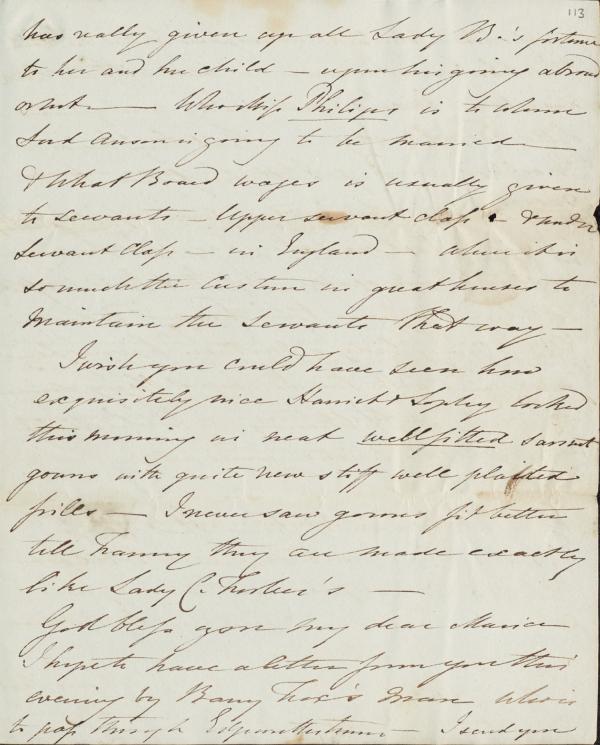 113
has really given up all Lady B.'s fortune
to her and her child — upon his going abroad
or not — Who Miss Philips is to whom
Lord Anson is going to be married —
& What Board wages is usually given
to servants — Upper servant class — & under
servant class — in England — where it is
so much the custom in great houses to
maintain the servants that way —
I wish you could have seen how
exquisitely nice Harriet & Sophy looked
this morning in neat well fitted sarsnet
gowns with quite new stiff well plaited
frills — I never saw gowns fit better
tell Fanny they are made exactly
like Lady C. —
God bless you my dear Maria
I hope to have a letter from you this
evening by Barry Fox's man who is
to pass through Edgeworthstown — I send you